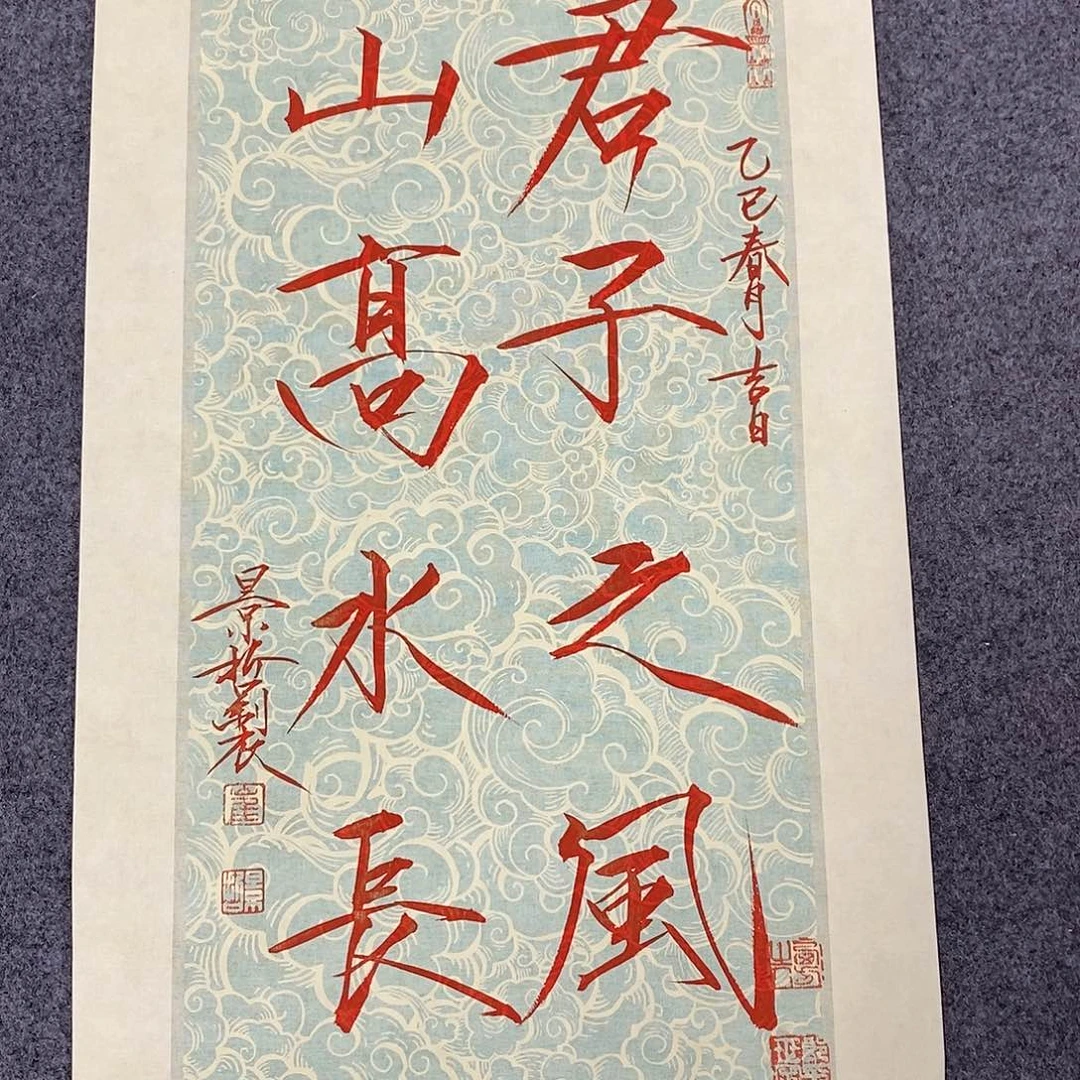 乙巳春月吉日
君子之風
山高水長
景哲製